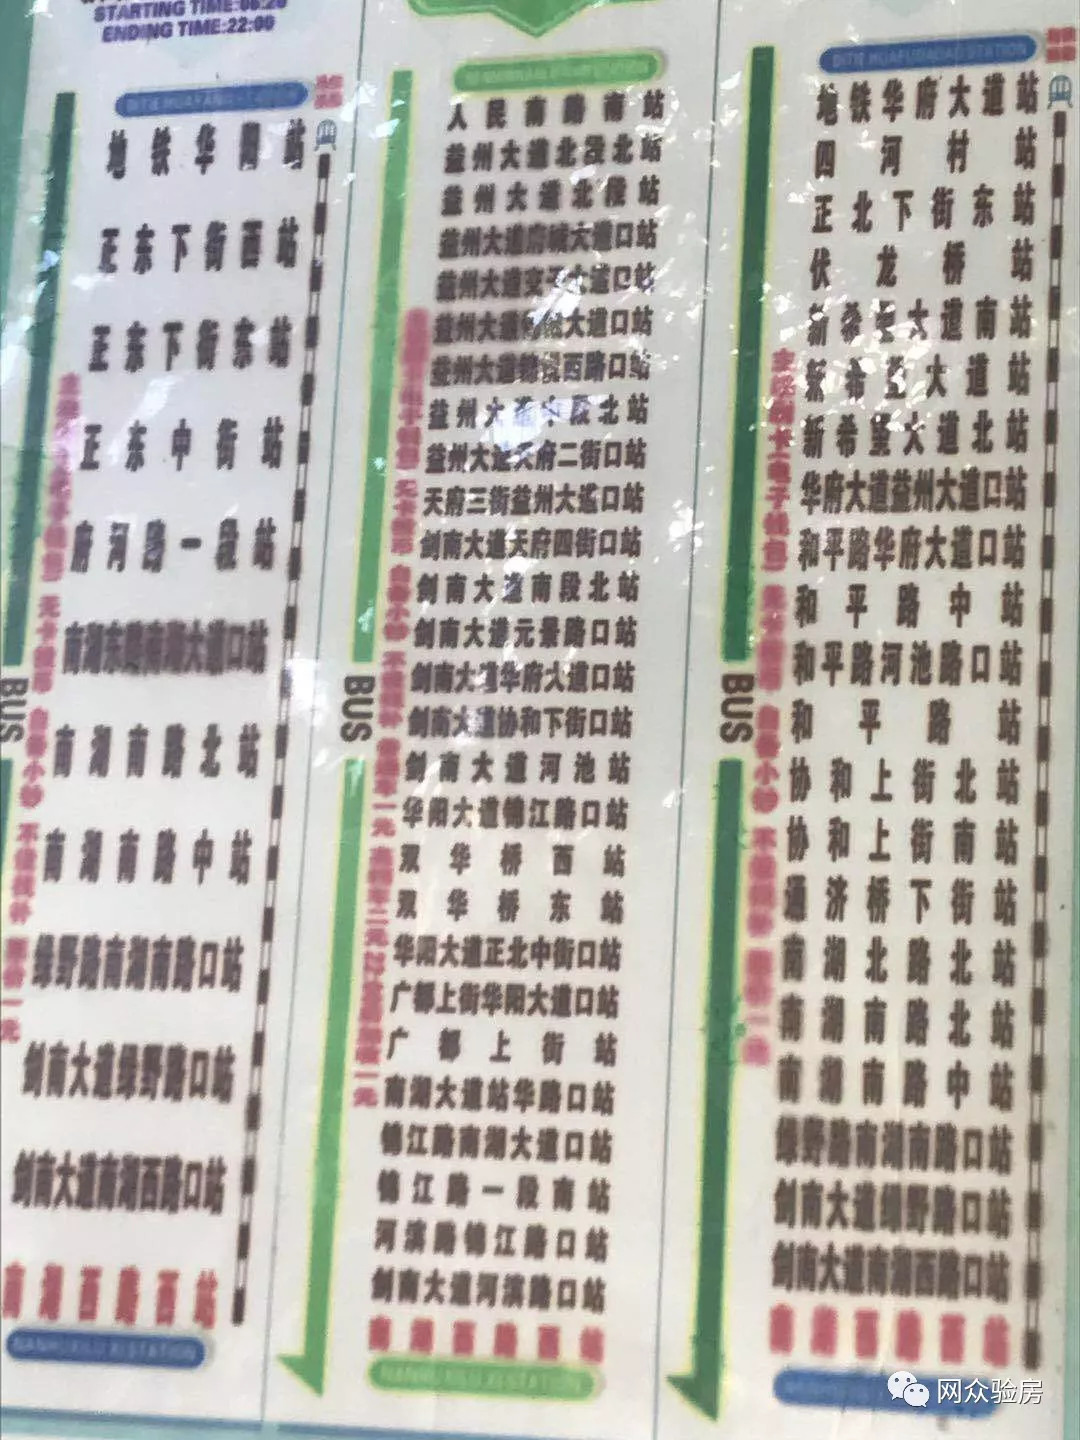 STARTING TIME:06:20
ENDING TIME:22:00
地铁华阳站
正东下街西站
正东下街东站
正东中街站
府河路一段站
南湖东路南湖大道口站
南湖南路北站
南湖南路中站
绿野路南湖南路口站
剑南大道绿野路口站
剑南大道南湖西路口站
南湖西路西站
NANHUXILU XI STATION
BUS
人民南路南站
益州大道北段北站
益州大道北段站
益州大道府城大道口站
益州大道交子大道口站
益州大道锦城大道口站
益州大道锦悦西路口站
益州大道中段北站
益州大道天府二街口站
天府三街益州大道口站
剑南大道天府四街口站
剑南大道南段北站
剑南大道元景路口站
剑南大道华府大道口站
剑南大道协和下街口站
剑南大道河池站
华阳大道锦江路口站
双华桥西站
双华桥东站
华阳大道正北中街口站
广都上街华阳大道口站
广都上街站
南湖大道站华路口站
锦江路南湖大道口站
锦江路一段南站
河滨路锦江路口站
剑南大道河滨路口站
南湖西路西站
NANHUXILU XI STATION
BUS
DITIE HUAFUDADAO STATION
地铁华府大道站
四河村站
正北下街东站
伏龙桥站
新希望大道南站
新希望大道站
新希望大道北站
华府大道益州大道口站
和平路华府大道口站
和平路中站
和平路河池路口站
和平路站
协和上街北站
协和上街南站
通济桥下街站
南湖北路北站
南湖南路北站
南湖南路中站
绿野路南湖南路口站
剑南大道绿野路口站
剑南大道南湖西路口站
南湖西路西站
BUS
网众验房